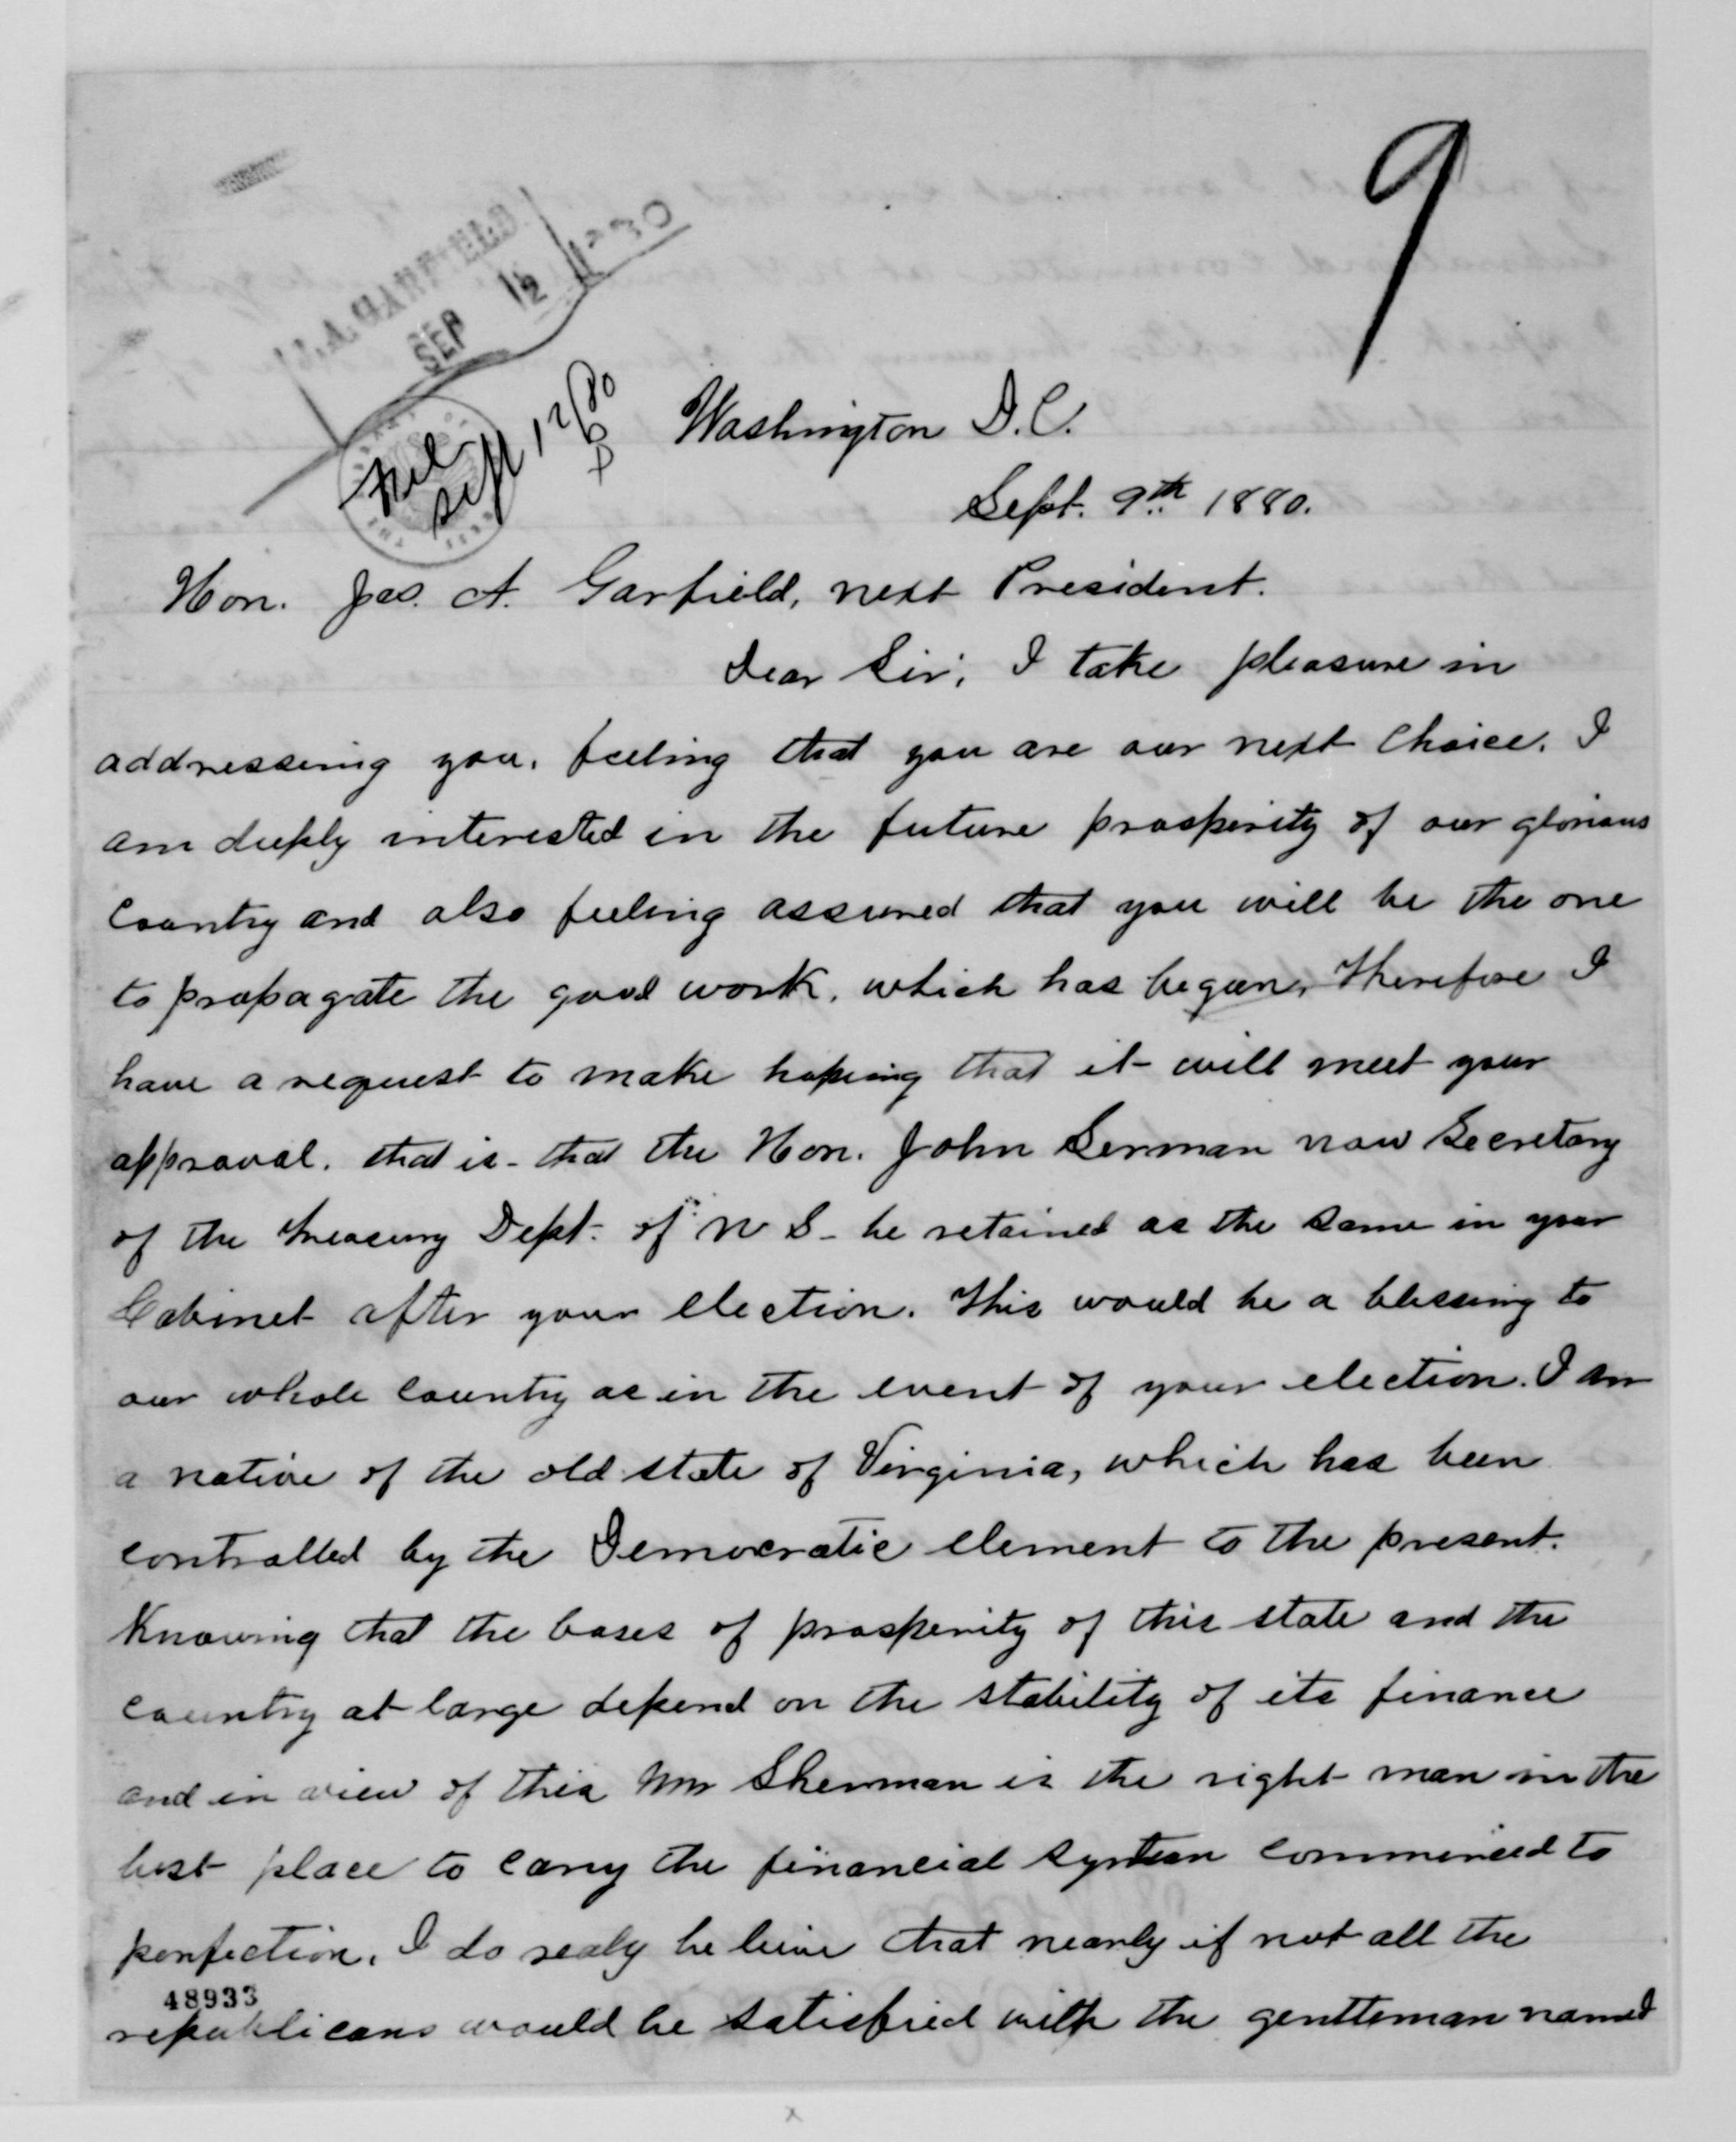 9
J. A. GARFIELD
SEP 12 1880
Sept 12/80
Washington D.C.
Sept. 9th 1880.
Hon. Jas. A. Garfield, next President.
Dear Sir; I take pleasure in
addressing you, feeling that you are our next Choice. I
am deeply interested in the future prosperity of our glorious
Country and also feeling assured that you will be the one
to propagate the good work, which has began, Therefore I
have a request to make hopeing that it will meet your
approval. that is - that the Hon. John Serman now Secretary
of the Treasury Dept. of U S - be retained as the same in your
Cabinet after your election. This would be a blessing to
our whole country as in the event of your election. I am
a native of the old state of Virginia, which has been
controlled by the Democratic element to the present.
Knowing that the bases of prosperity of this state and the
country at large depend on the stability of its finance
and in view of this Mr Sherman is the right man in the
best place to carry the financial system commenced to
perfection. I do realy believe that nearly if not all the
48933
republicans would be satisfied with the gentleman named